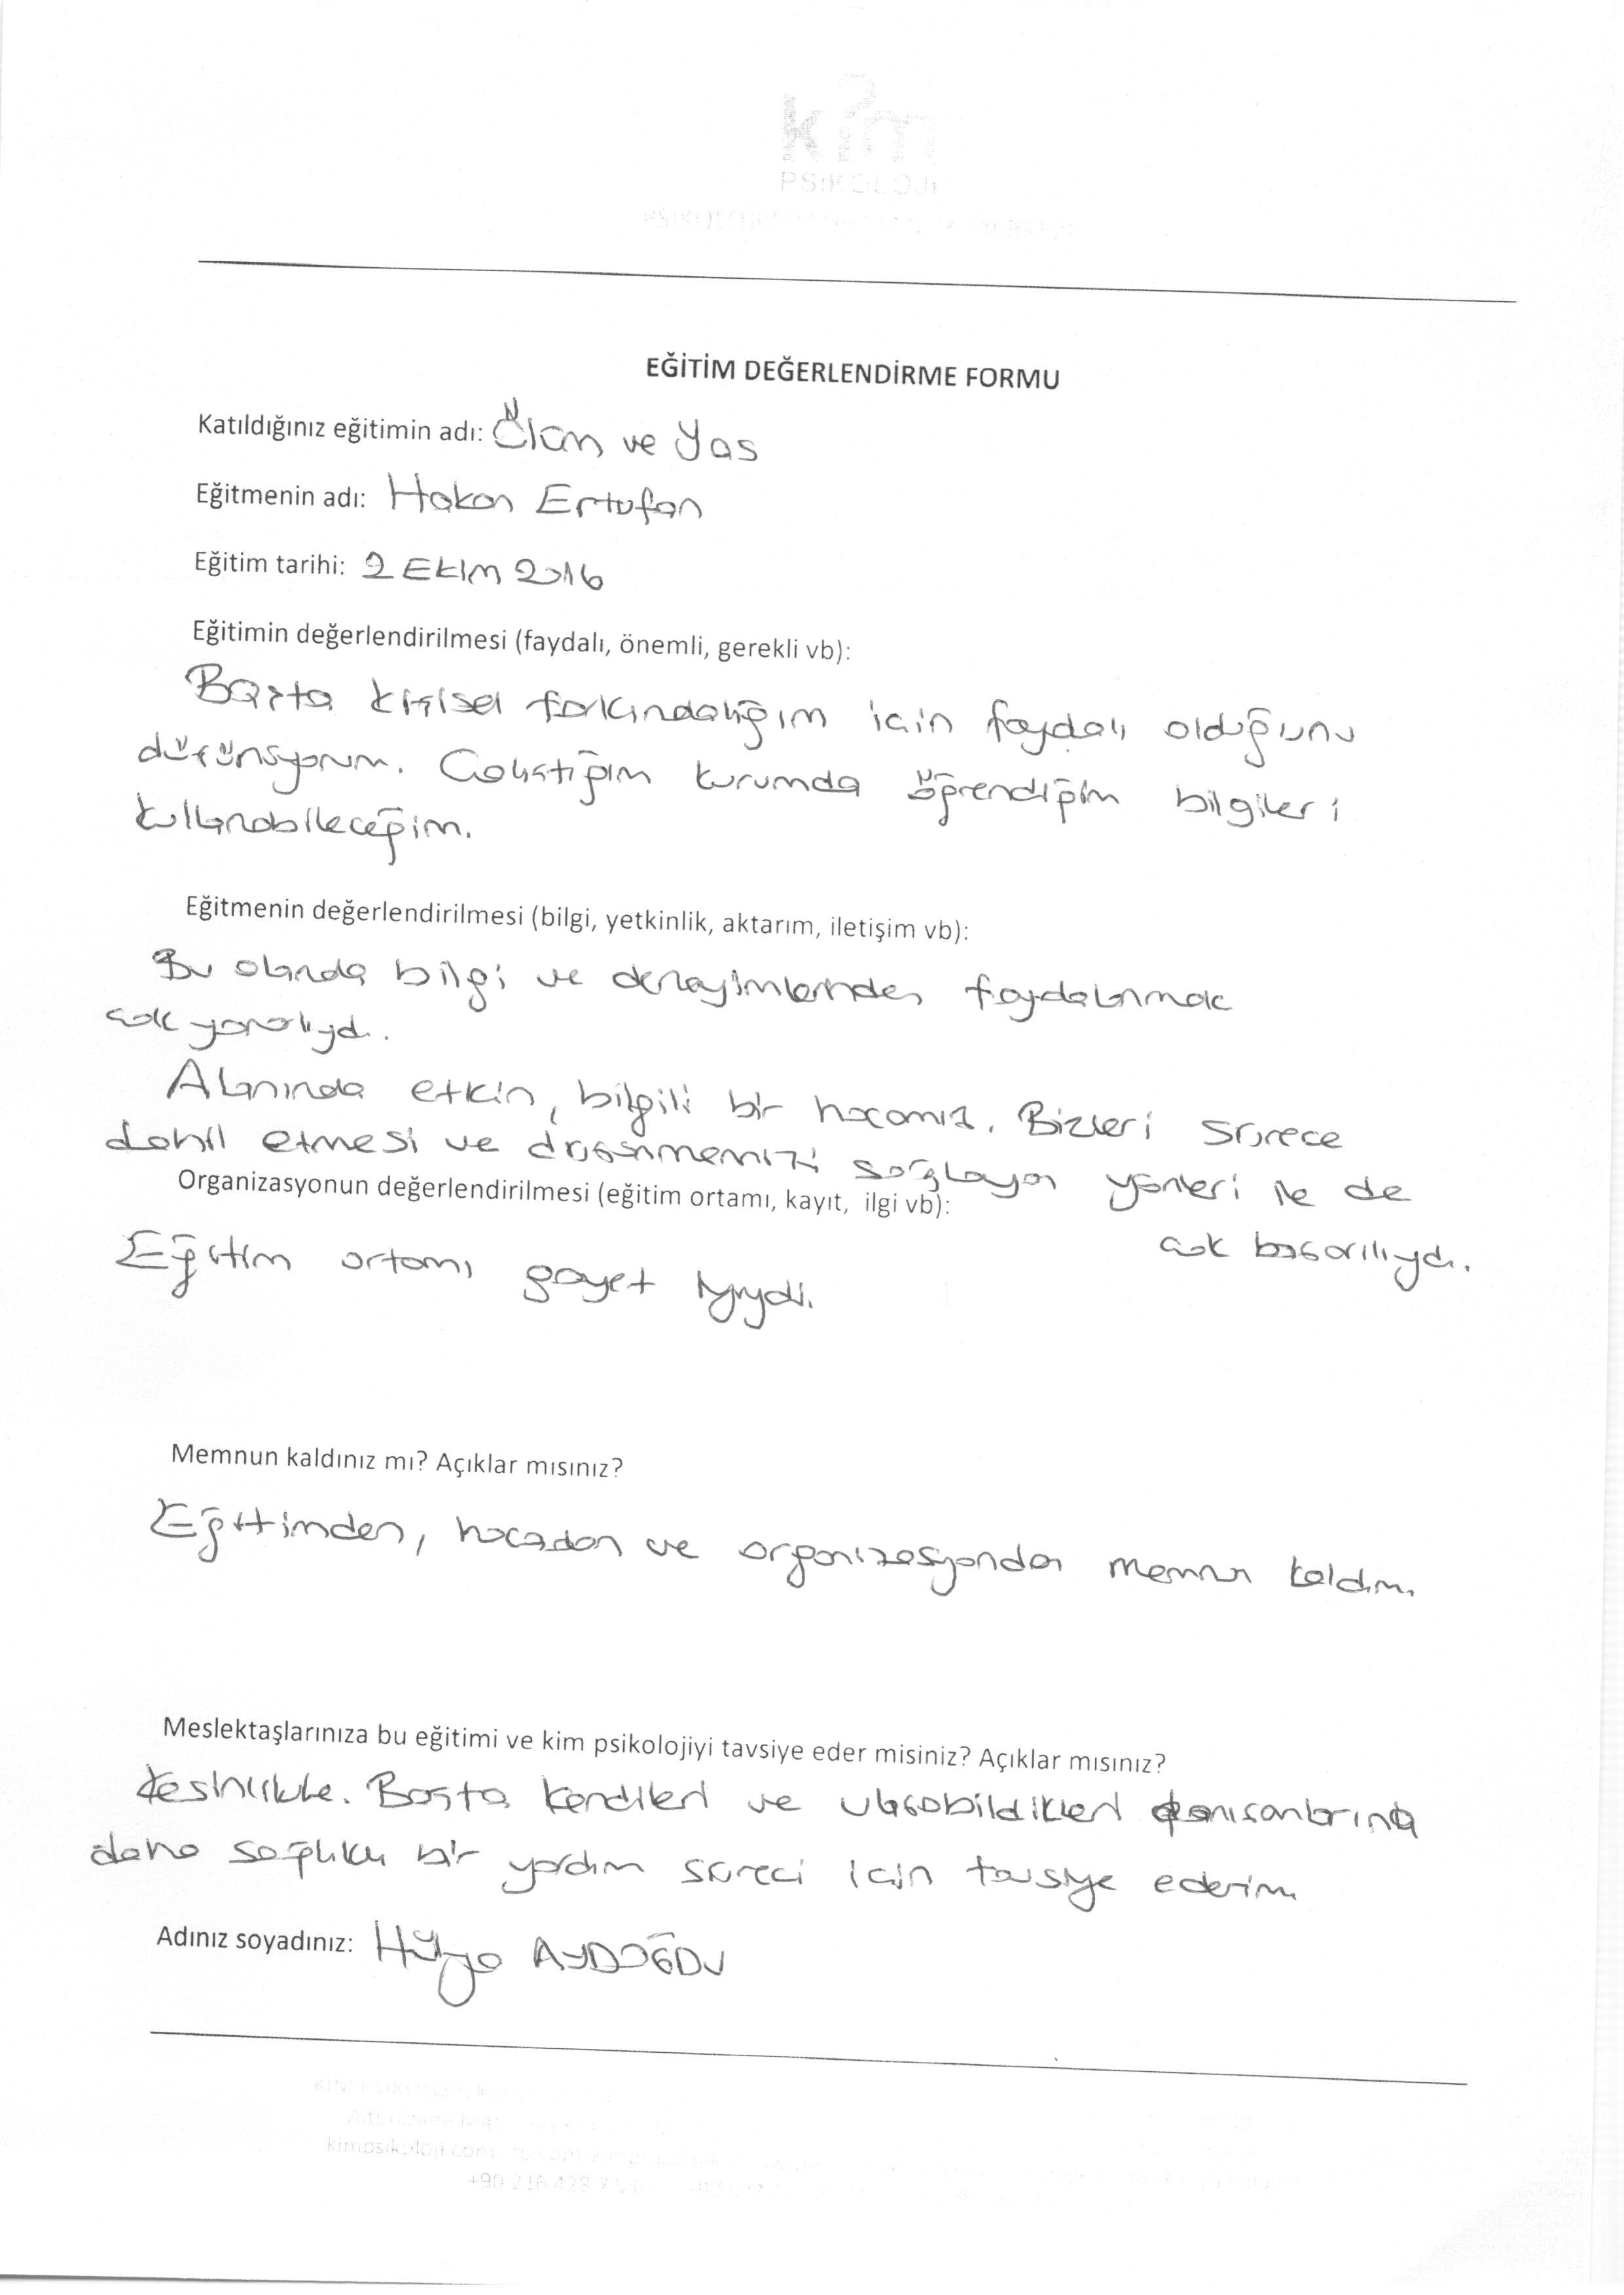 kim
PSİKOLOJİ
EĞİTİM DEĞERLENDİRME FORMU
Katıldığınız eğitimin adı: Ölüm ve Yas
Eğitmenin adı: Hakan Ertufan
Eğitim tarihi: 2 EKİM 2016
Eğitimin değerlendirilmesi (faydalı, önemli, gerekli vb):
Başta kişisel farkındalığım için faydalı olduğunu
düşünüyorum. Çalıştığım kurumda öğrendiğim bilgileri
kullanabileceğim.
Eğitmenin değerlendirilmesi (bilgi, yetkinlik, aktarım, iletişim vb):
Bu alanda bilgi ve deneyimlerinden faydalanmak
çok yararlıydı.
Alanında etkin, bilgili bir hocamız. Bizleri sürece
dahil etmesi ve düşünmemizi sağlayan yönleri ile de
çok başarılıydı.
Organizasyonun değerlendirilmesi (eğitim ortamı, kayıt, ilgi vb):
Eğitim ortamı gayet iyiydi.
Memnun kaldınız mı? Açıklar mısınız?
Eğitimden, hocadan ve organizasyondan memnun kaldım.
Meslektaşlarınıza bu eğitimi ve kim psikolojiyi tavsiye eder misiniz? Açıklar mısınız?
Kesinlikle. Başta kendileri ve ulaşabildikleri danışanlarına
daha sağlıklı bir yardım süreci için tavsiye ederim
Adınız soyadınız: Hülya AYDOĞDU
kimpsikoloji.com